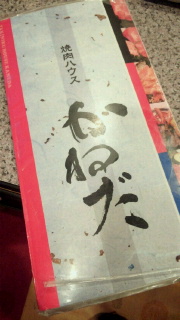 焼肉ハウス
かねだ